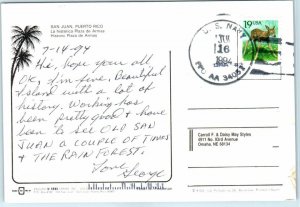 SAN JUAN, PUERTO RICO
La histórica Plaza de Armas
Historic Plaza de Armas
7-14-94
Hi, hope your all
OK, I'm fine. Beautiful
Island with a lot of
history. Working has
been pretty good & have
been to see OLD SAN
JUAN A COUPLE OF TIMES
& THE RAIN FOREST.
Love
George
U.S. NAVY
16
1994
FPO AA 34051
19 USA
Carroll F. & Daisy May Styles
6911 No. 83rd Avenue
Omaha, NE 68134